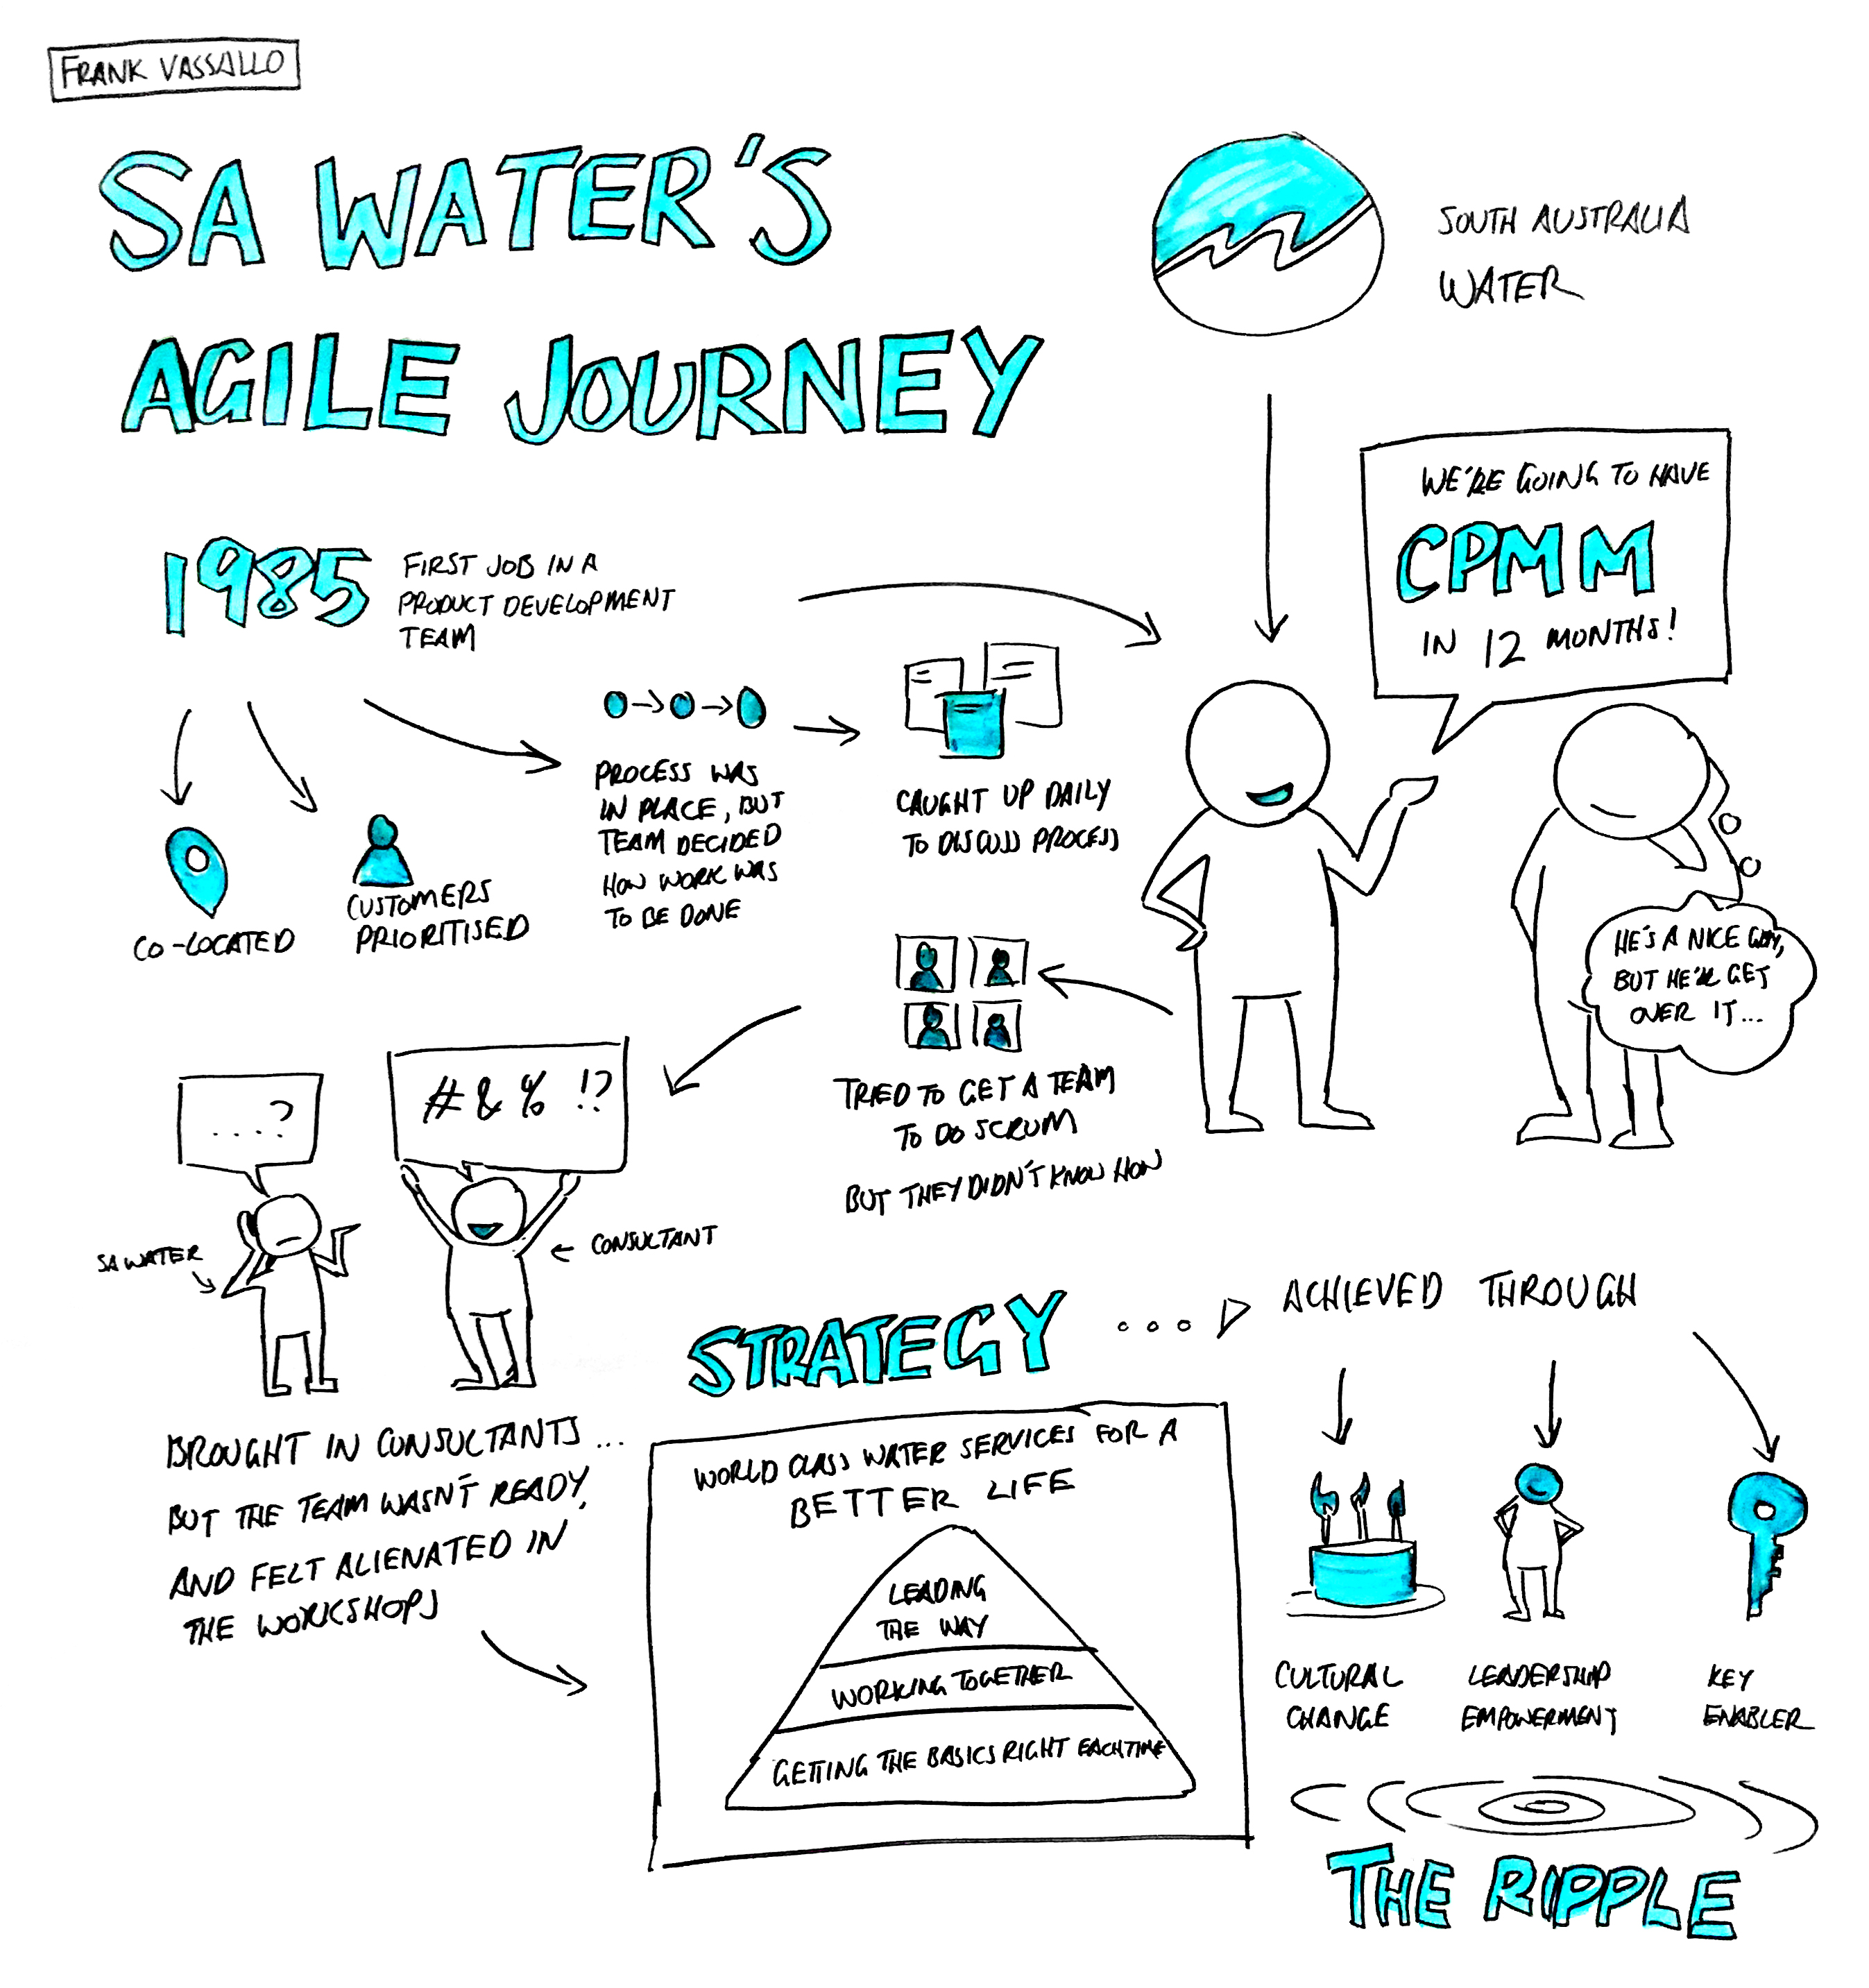 FRANK VASSALLO
SA WATER'S
AGILE JOURNEY
SOUTH AUSTRALIA
WATER
WE'RE GOING TO HAVE
CPMM
IN 12 MONTHS!
1985
FIRST JOB IN A
PRODUCT DEVELOPMENT
TEAM
CO-LOCATED
CUSTOMERS
PRIORITISED
PROCESS WAS
IN PLACE, BUT
TEAM DECIDED
HOW WORK WAS
TO BE DONE
CAUGHT UP DAILY
TO DISCUSS PROCESS
HE'S A NICE GUY,
BUT HE'LL GET
OVER IT...
TRIED TO GET A TEAM
TO DO SCRUM
BUT THEY DIDN'T KNOW HOW
....?
#&% !?
SA WATER
CONSULTANT
BROUGHT IN CONSULTANTS...
BUT THE TEAM WASN'T READY,
AND FELT ALIENATED IN
THE WORKSHOPS
STRATEGY
ACHIEVED THROUGH
WORLD CLASS WATER SERVICES FOR A
BETTER LIFE
LEADING
THE WAY
WORKING TOGETHER
GETTING THE BASICS RIGHT EACH TIME
CULTURAL
CHANGE
LEADERSHIP
EMPOWERMENT
KEY
ENABLER
THE RIPPLE